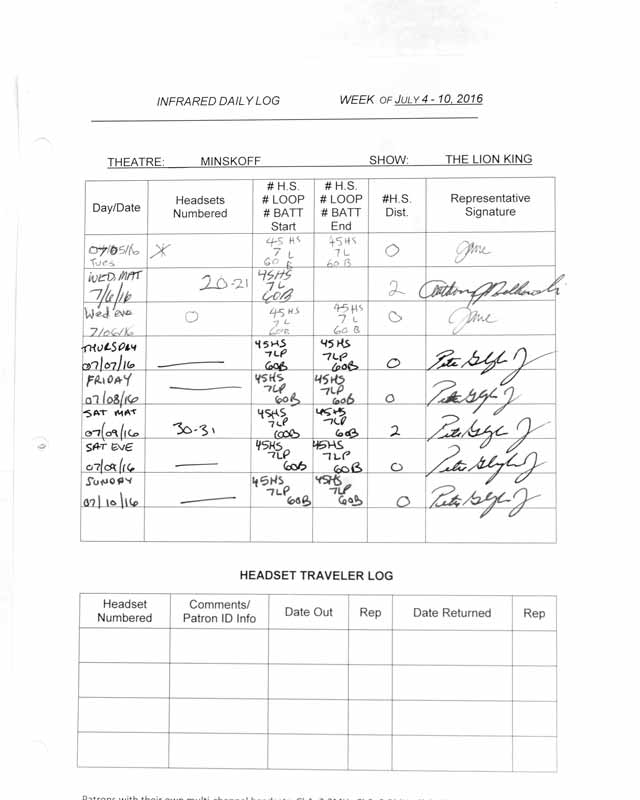 INFRARED DAILY LOG WEEK OF JULY 4 - 10, 2016
THEATRE: MINSKOFF SHOW: THE LION KING
Day/Date Headsets Numbered # H.S. # LOOP # BATT Start # H.S. # LOOP # BATT End #H.S. Dist. Representative Signature
07/05/16 Tues 45 HS 7 L 60 B 45HS 7L 60B 0 Jane
WED. MAT 7/6/16 20-21 45HS 7L 60B 2
Wed eve 7/06/16 0 45HS 7 L 60B 45HS 7 L 60 B 0 Jane
THURSDAY 07/07/16 — 45HS 7LP 60B 45HS 7LP 60B 0
FRIDAY 07/08/16 — 45HS 7LP 60B 45HS 7LP 60B 0
SAT MAT 07/09/16 30-31 45HS 7LP 60B 45HS 7LP 60B 2
SAT EVE 07/09/16 — 45HS 7LP 60B 45HS 7LP 60B 0
SUNDAY 07/10/16 — 45HS 7LP 60B 45HS 7LP 60B 0
HEADSET TRAVELER LOG
Headset Numbered Comments/ Patron ID Info Date Out Rep Date Returned Rep